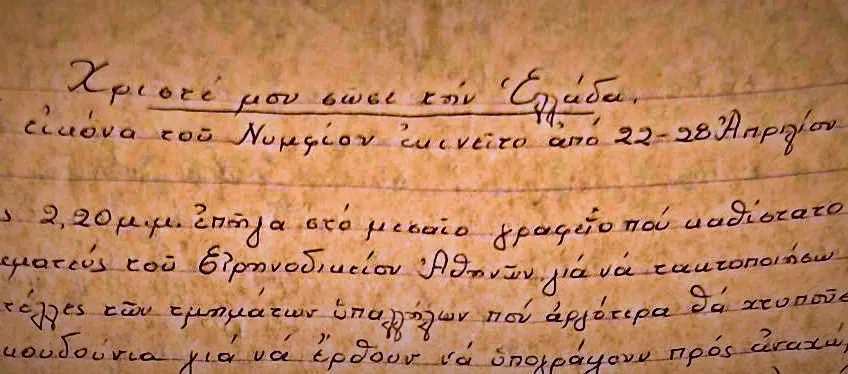 Χριστέ μου σῶσε τήν Ἑλλάδα.
εἰκόνα τοῦ Νυμφίου ἐκινεῖτο ἀπό 22-28 Ἀπριλίου
ς 2,20 μ.μ. ἐπῆγα στό μεσαῖο γραφεῖο πού καθίστατο
εματεύς τοῦ Εἰρηνοδικείου Ἀθηνῶν γιά νά τακτοποιήσω
τόλλες τῶν τμημάτων ὑπαλλήλων πού ἀργότερα θά χτυποῦσε
κουδούνια γιά νά ἔρθουν νά ὑπογράψουν πρός